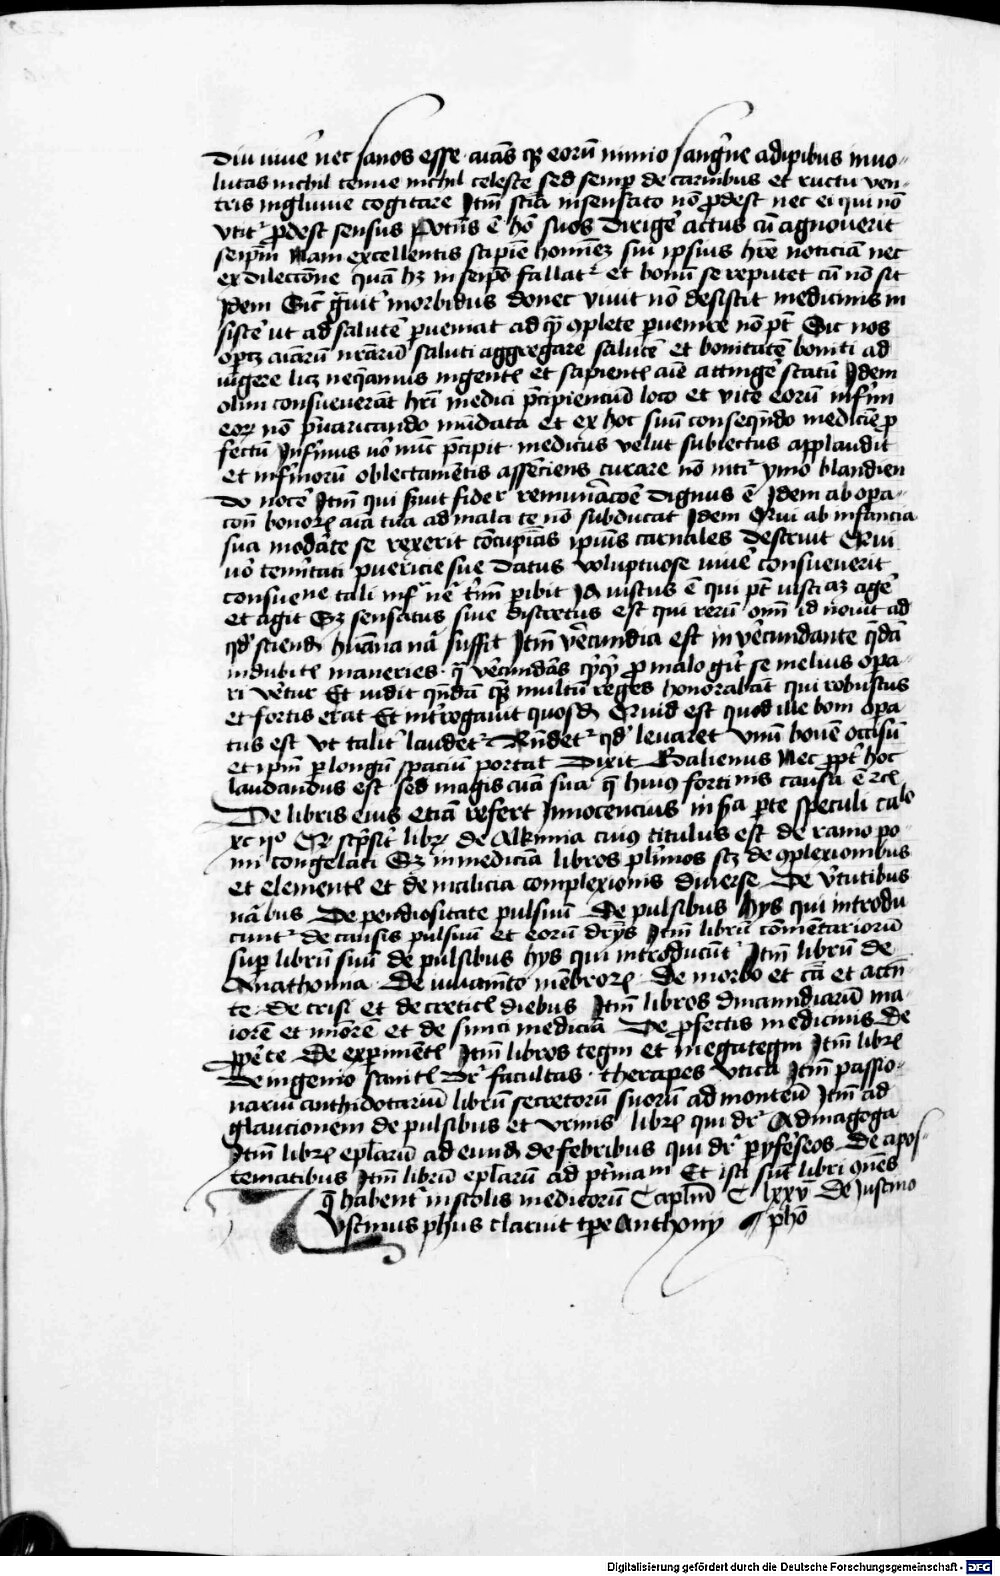 Diu viue' nec sanos esse aīas q3 eorū nimio sang'ne adipibus inuo-
lutas nichil tenue nichil celeste sed semp de carnibus et ructu ven-
tris ingluuie cogitare Itm̄ scīa insensato nō pdest nec ei qui nō
vtit' pdest sensus Potiūs ē hō suos dirige' actus cū agnouerit
seipm̄ Nam excellentis sapīe homīez sui ipsius hr̄e noticiam nec
ex dilecc̄one quā h3 in seipō fallat' et bonū se reputet cū nō sit
Idem Sic g̃uit' morbidus donec viuit nō desistit medicinis in
siste' ut ad salutē pueniat ad quā 9plete puenire nō pt̄ Sic nos
opt3 aīarū nr̄arū saluti aggregare salutē et bonitatē boniti ad
iugere lic3 neq̄amus ingentē et sapientē aīe attinge' statū Idem
olim consueuerāt hr̄i medici p̄cipienciū loco et vite eorū infirmi
eor nō p̄uaricando mādata et ex hoc suū conseq̄ndo medicīe p
fectū Infirmus uō nūc p̄cipit medicus velut subiectus applaudit
et infirmorū oblectamētis assēciens curare nō nitit' ymo blandien
do noce' Itm̄ qui s'uit fider remun'ac̄oē dignus ē Idem ab opa-
cōn bonor aīa tua ad mala te nō subducat Idem Qui ab infancia
sua mod'ate se rexerit cōcupīas ipius carnales destruit Qui
uō tem'itati puericie sue datus voluptuose viue' consueuerit
tali pibit Id iustus ē qui pt̄ iusticiaz age'
et agit S3 sensatus siue discretus est qui rerū om̄ id nouit ad
qd' sciend hūana nā suffit Itm̄ v'ecundia est in v'ecundante q̄dā
maneries q̄ v'ecundās pro malo git' se melius opa-
ri v'etur Et vidit quēdā q3 multū reges honorabāt qui robustus
et fortis erat Et int'rogauit quosd Quid est quod ille boni opa
tus est vt talit' laudet' Rn̄det' qd' leuaret vnū bouē occisū
et ipm̄ p longū spaciū portat Dixit Galienus Nec ppt' hoc
laudandus est sed magis aīa sua q̄ huius fortitudinis causa ē rc
De libris eius etiā refert Innocencius in s'a pte speculi ca'lo
xc ij° Qr scpsit libr de Alkimia cui9 titulus est de ramo po-
mi congelati S3 in medicīa libros plimos sc3 de 9plexionibus
et element et de malicia complexionis diuerse De v'tutibus
nā'bus De pendiositate pulsuū De pulsibus hys qui introdu
cunt' de causis pulsuū et eorū drn̄s Itm̄ librū cōmentariorū
sup librū suū de pulsibus hys qui introducūt' Itm̄ librū de
Anathomia De iuuamēto mēbror De morbo et cā et accn̄-
te De crisi et de cretic diebus Itm̄ libros dinamidiarū ma-
iorē et minorē et de simci medicīa De pfectis medicinis De
De expimēt Itm̄ libros tegni et megategni Itm̄ libr
De ingenio sanit Dr facultas therapes vtica Itm̄ passio-
nariū anthidotariū librū secretorū suorū ad monteū Itm̄ ad
glauconem de pulsibus et vrinis libr qui dr Admagoga
Itm̄ libr eplarū ad eund de febribus qui dr De apos-
tematibus Itm̄ librū eplarū ad Et isti sūt libri 9nēs
q̄ habent' in scolis medicorū Caplm̄ C lxxv De Iustino
Iustinus phus claruit tpe Anthonij pho
Digitalisierung gefördert durch die Deutsche Forschungsgemeinschaft - DFG